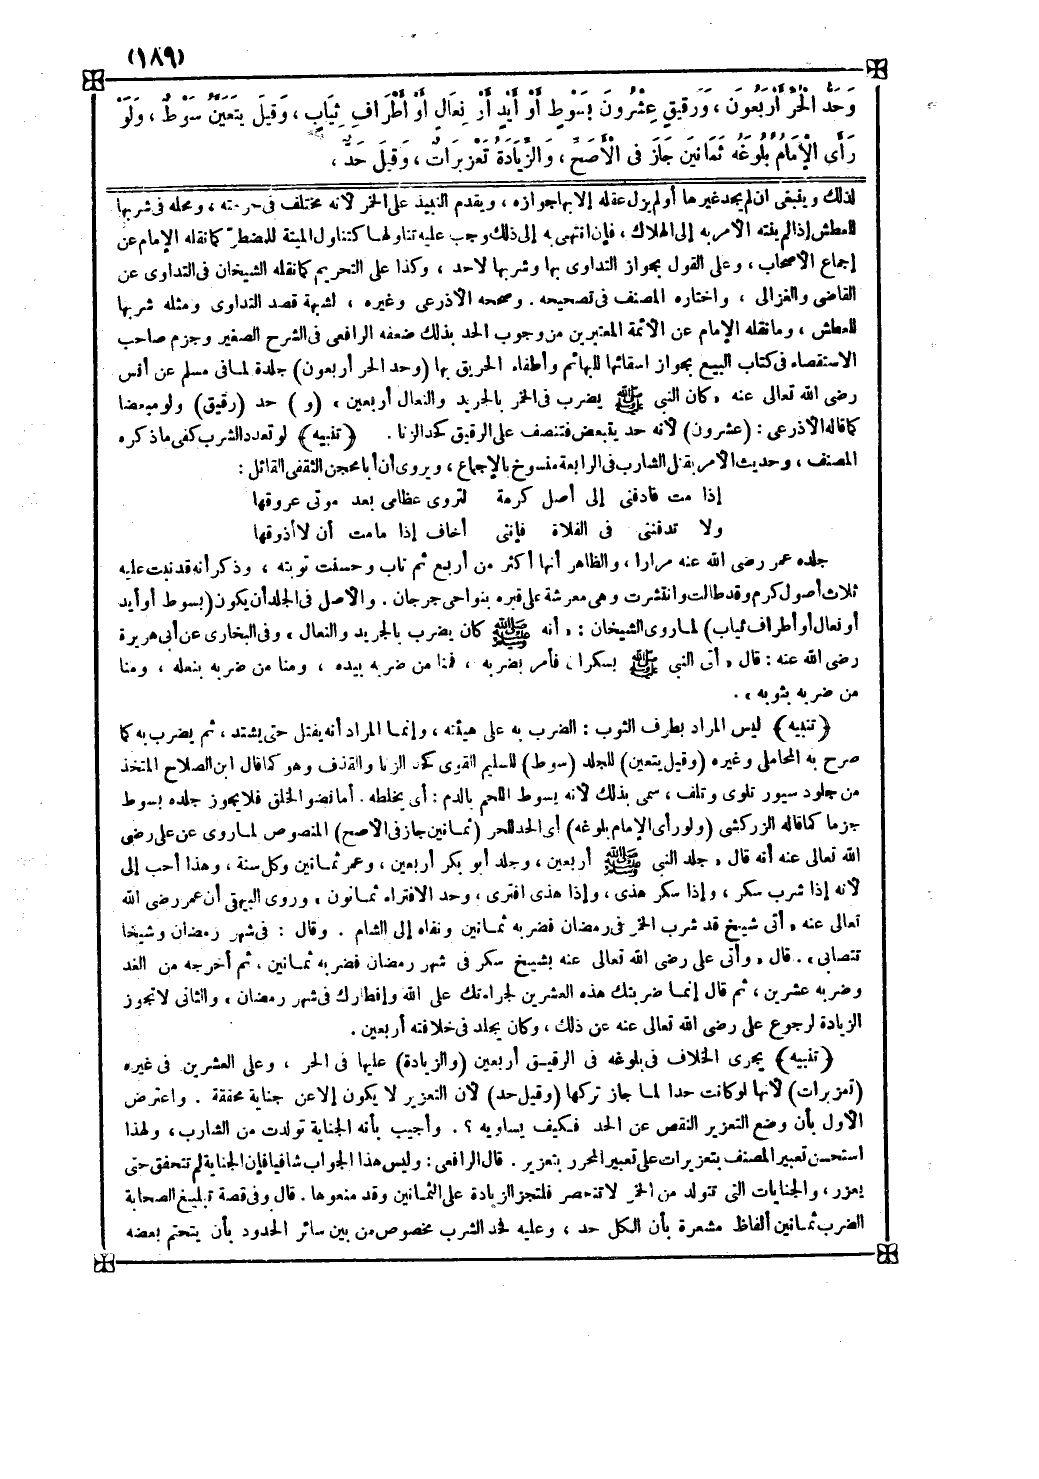 (١٨٩)
وَحَدُّ الْحُرِّ أَرْبَعُونَ ، وَرَقِيقٍ عِشْرُونَ بِسَوْطٍ أَوْ أَيْدٍ أَوْ نِعَالٍ أَوْ أَطْرَافِ ثِيَابٍ ، وَقِيلَ يَتَعَيَّنُ سَوْطٌ ، وَلَوْ
رَأَى الْإِمَامُ بُلُوغَهُ ثَمَانِينَ جَازَ فِى الْأَصَحِّ ، وَالزِّيَادَةُ تَعْزِيرَاتٌ ، وَقِيلَ حَدٌّ ،
لذلك وينبغى ان لم يجد غيرها أو لم يزل عقله إلا بها جوازه ، ويقدم النبيذ على الخمر لأنه مختلف فى حرمته ، ومحله فى شربها
للعطش إذا لم ينته الأمر به إلى الهلاك ، فإن انتهى به إلى ذلك وجب عليه تناولها كتناول الميتة للمضطر كما نقله الإمام عن
إجماع الأصحاب ، وعلى القول بجواز التداوى بها وشربها لا حد ، وكذا على التحريم كما نقله الشيخان فى التداوى عن
القاضى والغزالى ، واختاره المصنف فى تصحيحه . وصححه الأذرعى وغيره ، لشبهة قصد التداوى ومثله شربها
للعطش ، وما نقله الإمام عن الأئمة المعتبرين من وجوب الحد بذلك ضعفه الرافعى فى الشرح الصغير وجزم صاحب
الاستقصاء فى كتاب البيع بجواز اسقائها للبهائم وأطفاء الحريق بها (وحد الحر أربعون) جلدة لما فى مسلم عن أنس
رضى الله تعالى عنه « كان النبى ﷺ يضرب فى الخمر بالجريد والنعال أربعين » (و) حد (رقيق) ولو مبعضا
كما قاله الأذرعى : (عشرون) لأنه حد يتبعض فتنصف على الرقيق كحد الزنا . (تنبيه) لو تعدد الشرب كفى ما ذكره
المصنف ، وحديث الأمر بقتل الشارب فى الرابعة منسوخ بالإجماع ، ويروى أن أبا محجن الثقفى القائل :
إذا مت فادفنى إلى أصل كرمة لتروى عظامى بعد موتى عروقها
ولا تدفننى فى الفلاة فإننى أخاف إذا ما مت أن لا أذوقها
جلده عمر رضى الله عنه مرارا ، والظاهر أنها أكثر من أربع ثم تاب وحسنت توبته ، وذكر أنه قد نبت عليه
ثلاث أصول كرم وقد طالت وانتشرت وهى معرشة على قبره بنواحى جرجان . والأصل فى الجلد أن يكون (بسوط أو أيد
أو نعال أو أطراف ثياب) لما روى الشيخان : « أنه ﷺ كان يضرب بالجريد والنعال » وفى البخارى عن أبى هريرة
رضى الله عنه : قال « أتى النبى ﷺ بسكران فأمر بضربه ، فمنا من ضربه بيده ، ومنا من ضربه بنعله ، ومنا
من ضربه بثوبه » .
(تنبيه) ليس المراد بطرف الثوب : الضرب به على هيئته ، وإنما المراد أنه يفتل حتى يشتد ، ثم يضرب به كما
صرح به المحاملى وغيره (وقيل يتعين) للجلد (سوط) للسليم القوى كحد الزنا والقذف وهو كما قال ابن الصلاح المتخذ
من جلود سيور تلوى وتلف ، سمى بذلك لأنه يسوط اللحم بالدم : أى يخلطه . أما نضو الخلق فلا يجوز جلده بسوط
جزما كما قاله الزركشى (ولو رأى الإمام بلوغه) أى الحد للحر (ثمانين جاز فى الأصح) المنصوص لما روى عن على رضى
الله تعالى عنه أنه قال « جلد النبى ﷺ أربعين ، وجلد أبو بكر أربعين ، وعمر ثمانين وكل سنة ، وهذا أحب إلى
لأنه إذا شرب سكر ، وإذا سكر هذى ، وإذا هذى افترى ، وحد الافتراء ثمانون » وروى البيهقى أن عمر رضى الله
تعالى عنه « أتى شيخ قد شرب الخمر فى رمضان فضربه ثمانين ونفاه إلى الشام . وقال : فى شهر رمضان وشيخا
تتصابى » . قال « وأتى على رضى الله تعالى عنه بشيخ سكر فى شهر رمضان فضربه ثمانين ، ثم أخرجه من الغد
وضربه عشرين ، ثم قال إنما ضربتك هذه العشرين لجراءتك على الله وإفطارك فى شهر رمضان » والثانى لا تجوز
الزيادة لرجوع على رضى الله تعالى عنه عن ذلك ، وكان يجلد فى خلافته أربعين .
(تنبيه) يجرى الخلاف فى بلوغه فى الرقيق أربعين (والزيادة) عليها فى الحر ، وعلى العشرين فى غيره
(تعزيرات) لأنها لو كانت حدا لما جاز تركها (وقيل حد) لأن التعزير لا يكون إلا عن جناية محققة . واعترض
الأول بأن وضع التعزير النقص عن الحد فكيف يساويه ؟ . وأجيب بأنه الجناية تولدت من الشارب ، ولهذا
استحسن تعبير المصنف بتعزيرات على تعبير المحرر بتعزير . قال الرافعى : وليس هذا الجواب شافيا فإن الجناية لم تتحقق حتى
يعزر ، والجنايات التى تتولد من الخمر لا تنحصر فلتجز الزيادة على الثمانين وقد منعوها . قال وفى قصة تبليغ الصحابة
الضرب ثمانين ألفاظ مشعرة بأن الكل حد ، وعليه فحد الشرب مخصوص من بين سائر الحدود بأن يتحتم بعضه